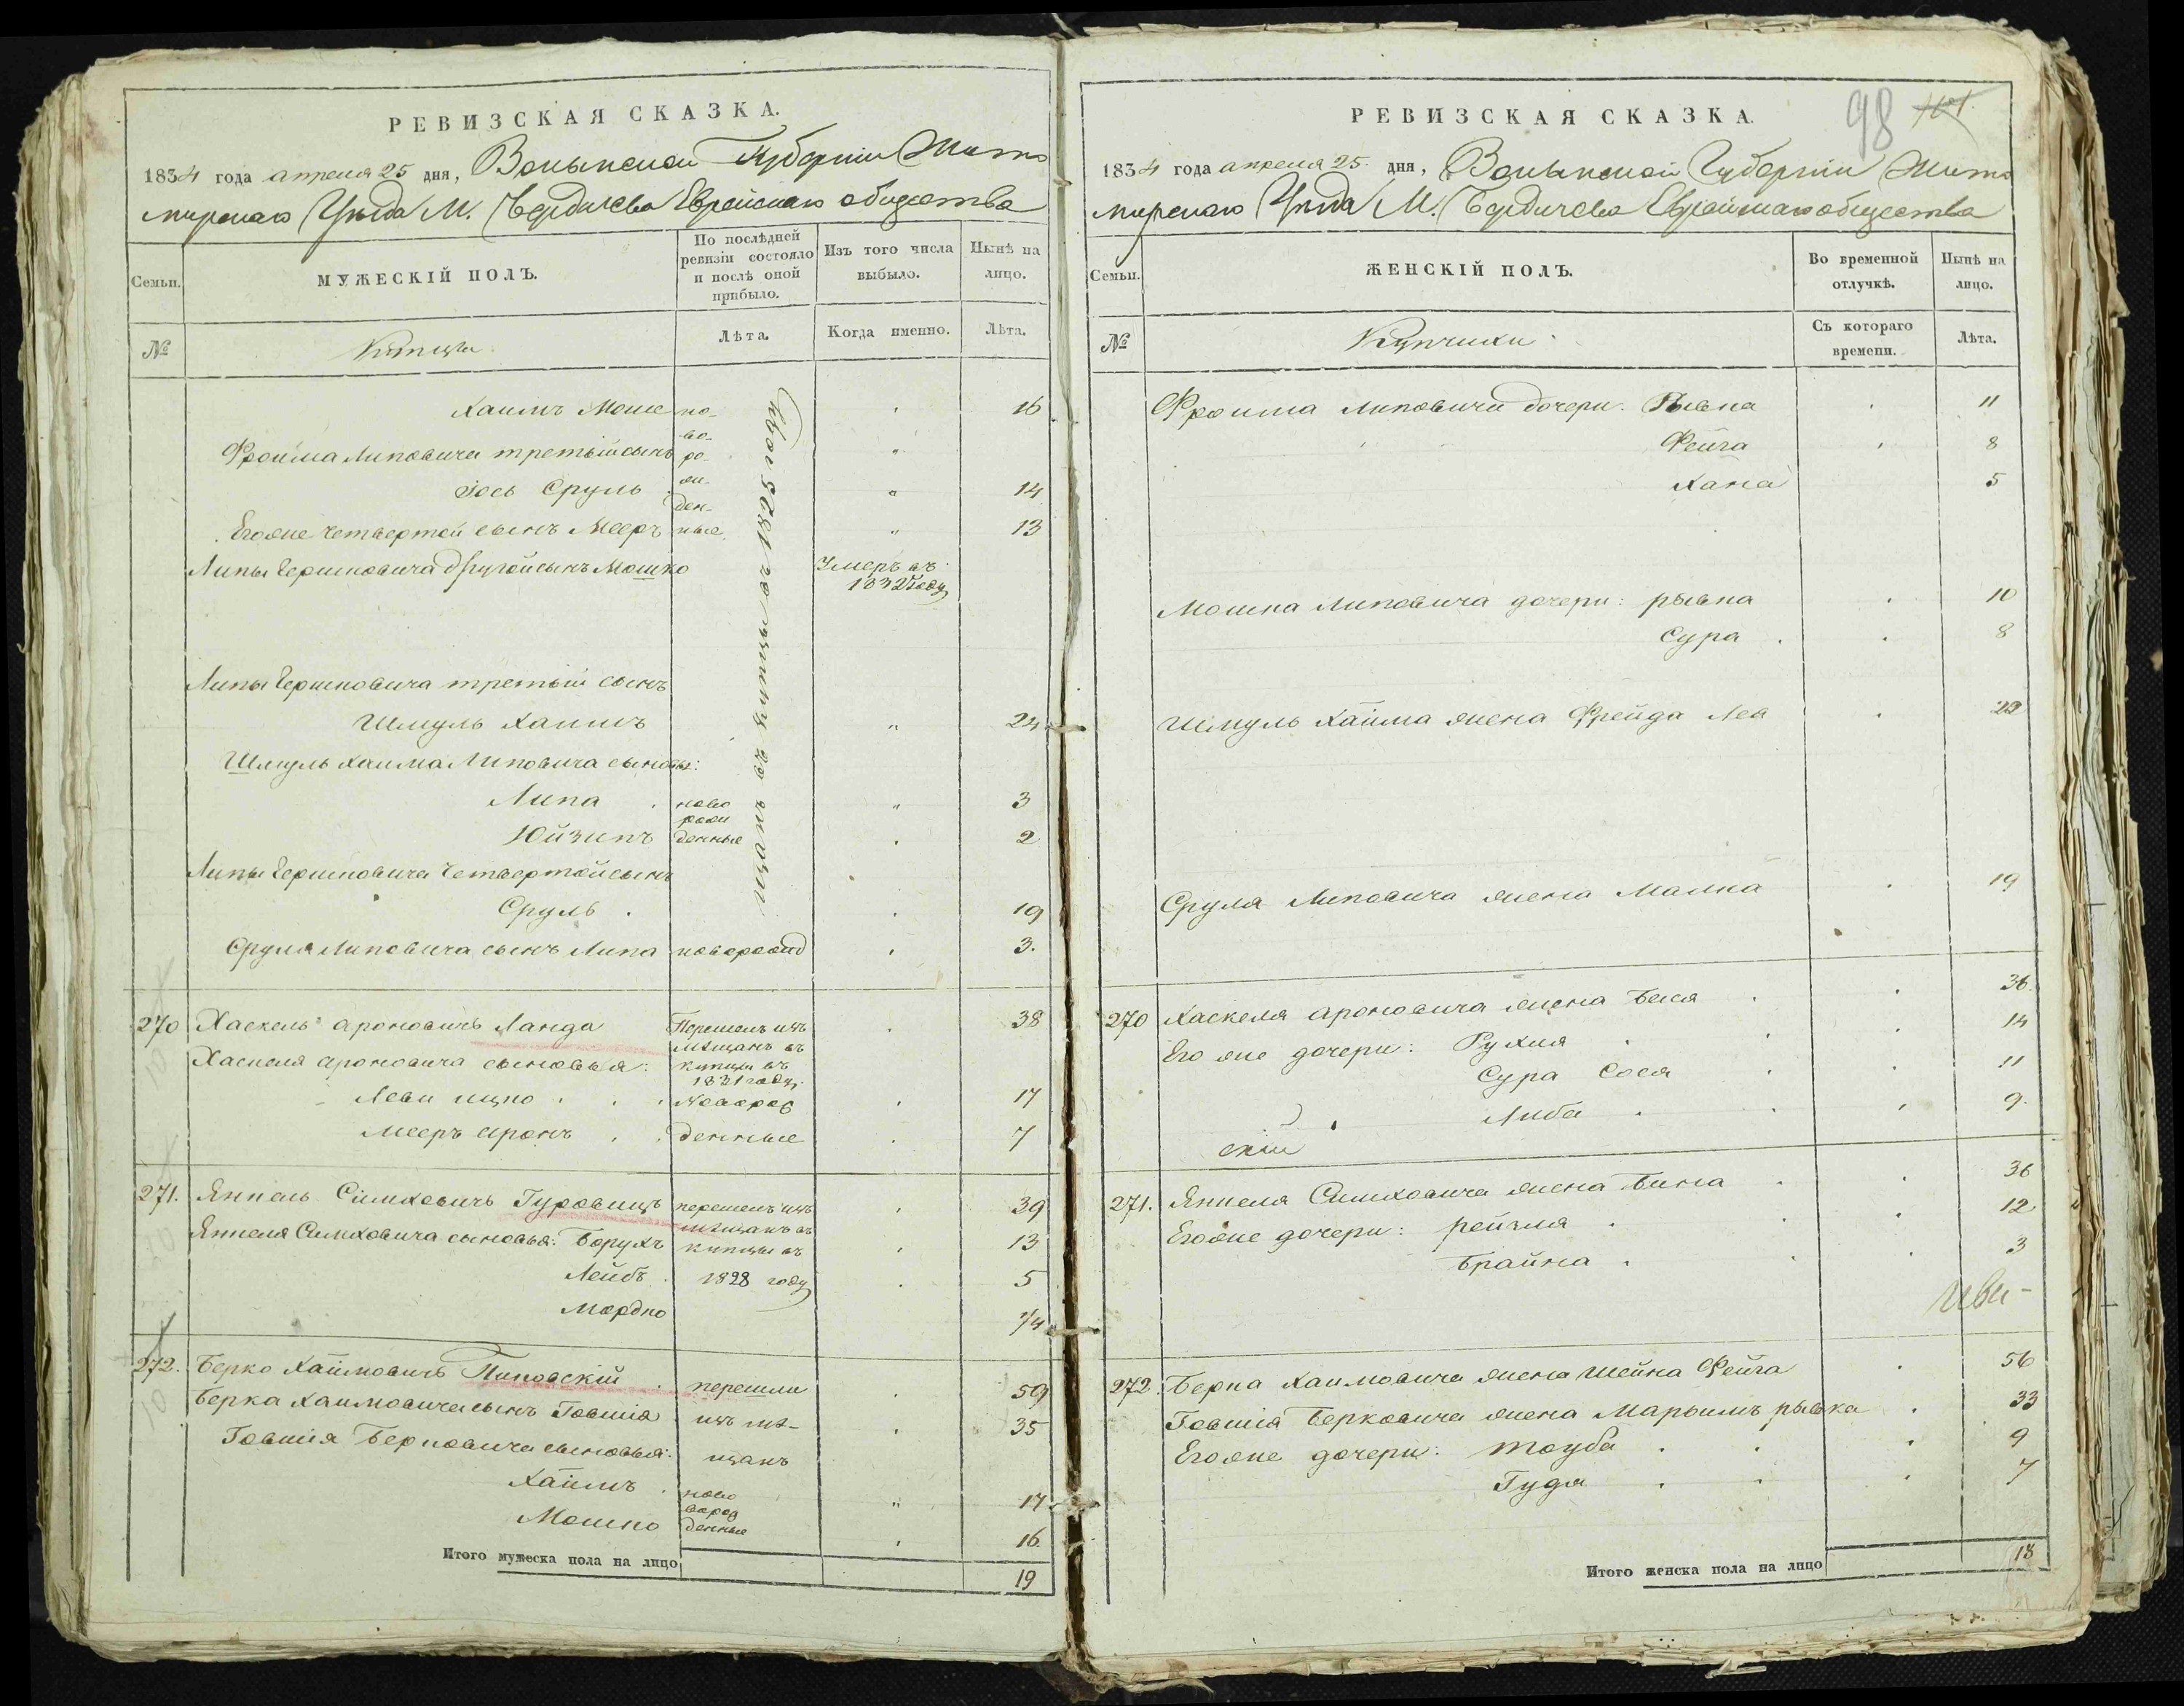 РЕВИЗСКАЯ СКАЗКА.
1834 года апреля 25 дня, Волынской Губерніи Жито
мирскаго Уезда М. Бердичева Еврейскаго общества
Семьи.
МУЖЕСКІЙ ПОЛЪ.
По послѣдней ревизіи состояло и послѣ оной прибыло.
Изъ того числа выбыло.
Нынѣ на лицо.
№
Купцы
Лѣта.
Когда именно.
Лѣта.
Хаимъ Мошко 16
новорожденные
Фроима Липовича третьій сынъ
Іось Сруль 14
Егоже Четвертой сынъ Мееръ 13
Липы Гершковича другой сынъ Мошко Умеръ въ 1832 году
Липы Гершковича третьій сынъ
Шмуль Хаимъ 24
Шмуль Хаима Липовича сыновья:
Липа новорож 3
Юйзипъ денные 2
Липы Гершковича Четвертой сынъ
Сруль 19
Сруля Липовича сынъ Липа новорожд 3.
270 Хаскель Ароновичъ Ланда Перешелъ изъ мѣщанъ въ купцы въ 1831 году. 38
Хаскеля Ароновича сыновья:
Леви ицко Новорож 17
Мееръ Аронъ денные 7
271. Янкель Симховичъ Гуровицъ перешелъ изъ мѣщанъ въ 39
Янкеля Симховича сыновья: Борухъ купцы въ 13
Лейбъ 1828 году 5
Мордко 1/4
272. Берко Хаимовичъ Липовскій перешли 59
Берка Хаимовича сынъ Говшія изъ мѣ- 35
Говшія Берковича сыновья: щанъ
Хаимъ ново 17
Мошко денные 16
Итого мужеска пола на лицо 19
98
101
РЕВИЗСКАЯ СКАЗКА.
1834 года апреля 25 дня, Волынской Губерніи Жито
мирскаго Уезда М. Бердичева Еврейскаго общества
Семьи.
ЖЕНСКІЙ ПОЛЪ.
Во временной отлучкѣ.
Нынѣ на лицо.
№
Купчихи
Съ котораго времени.
Лѣта.
Фроима Липовича дочери: Рывка 11
Фейга 8
Хана 5
Мошка Липовича дочери: рывка 10
Сура 8
Шмуль Хаима жена Фрейда Лея 23
Сруля Липовича жена Малка 19
270 Хаскеля Ароновича жена Бася 36.
Его же дочери: Рухля 14
Сура Сося 11
Либа 9.
скій
271. Янкеля Симховича жена Бина 36
Егоже дочери: рейзля 12
Брайна 3
272. Берка Хаимовича жена Шейна Фейга 56
Говшія Берковича жена Марьимъ рывка 33
Егоже дочери: тауба 9
Гудя 7
Итого женска пола на лицо 18